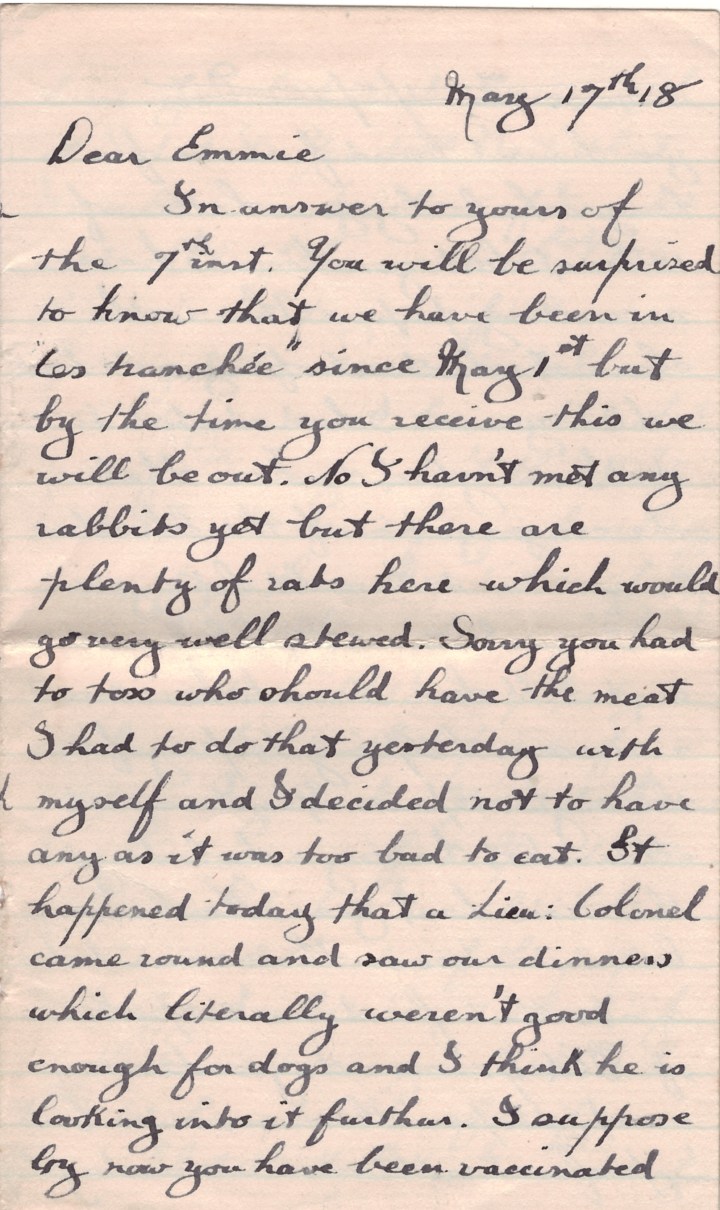 May 17th 18
Dear Emmie
In answer to yours of
the 7th inst. You will be surprised
to know that we have been in
"les tranchée" since May 1st but
by the time you receive this we
will be out. No I havn't met any
rabbits yet but there are
plenty of rats here which would
go very well stewed. Sorry you had
to toss who should have the meat
I had to do that yesterday with
myself and I decided not to have
any as it was too bad to eat. It
happened today that a Lieu: Colonel
came round and saw our dinners
which literally weren't good
enough for dogs and I think he is
looking into it further. I suppose
by now you have been vaccinated